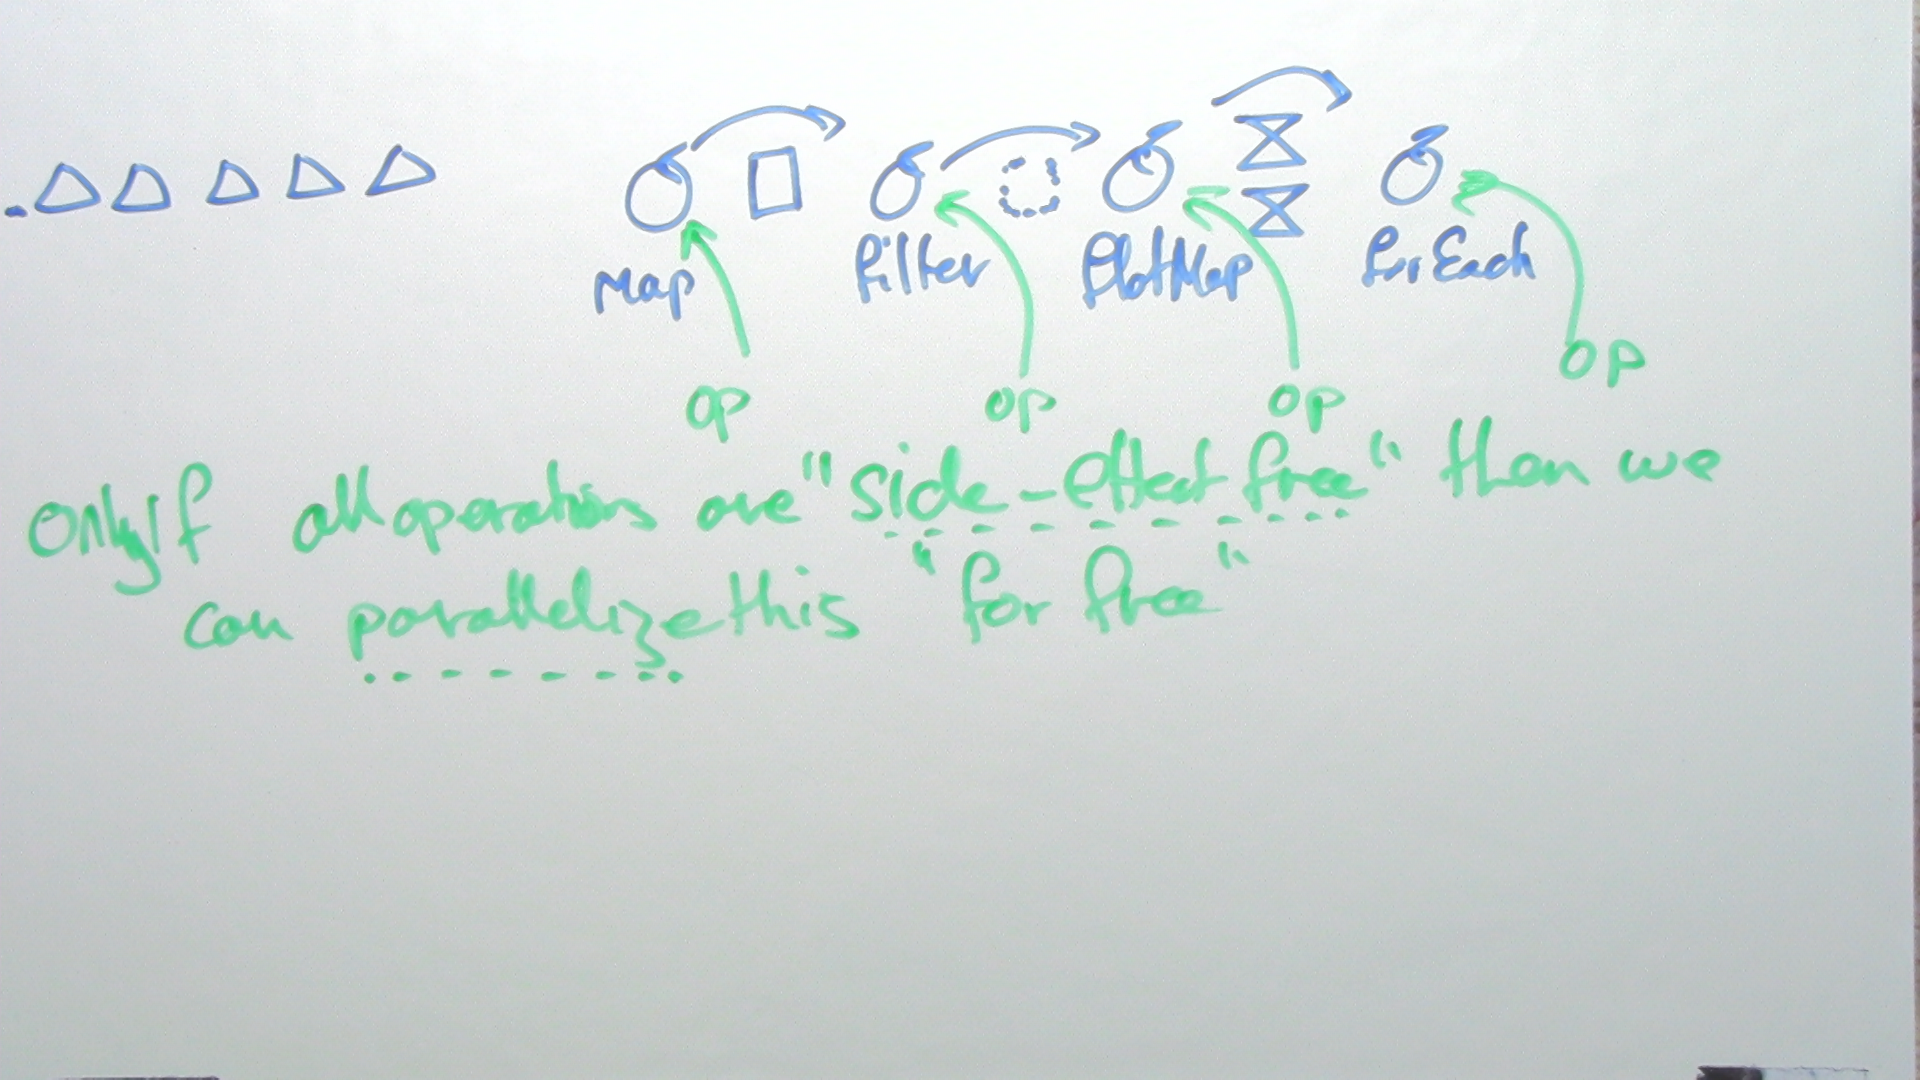 Map filter flatMap forEach
op op op op
Only if all operations are "side-effect free" then we
can parallelize this "for free"